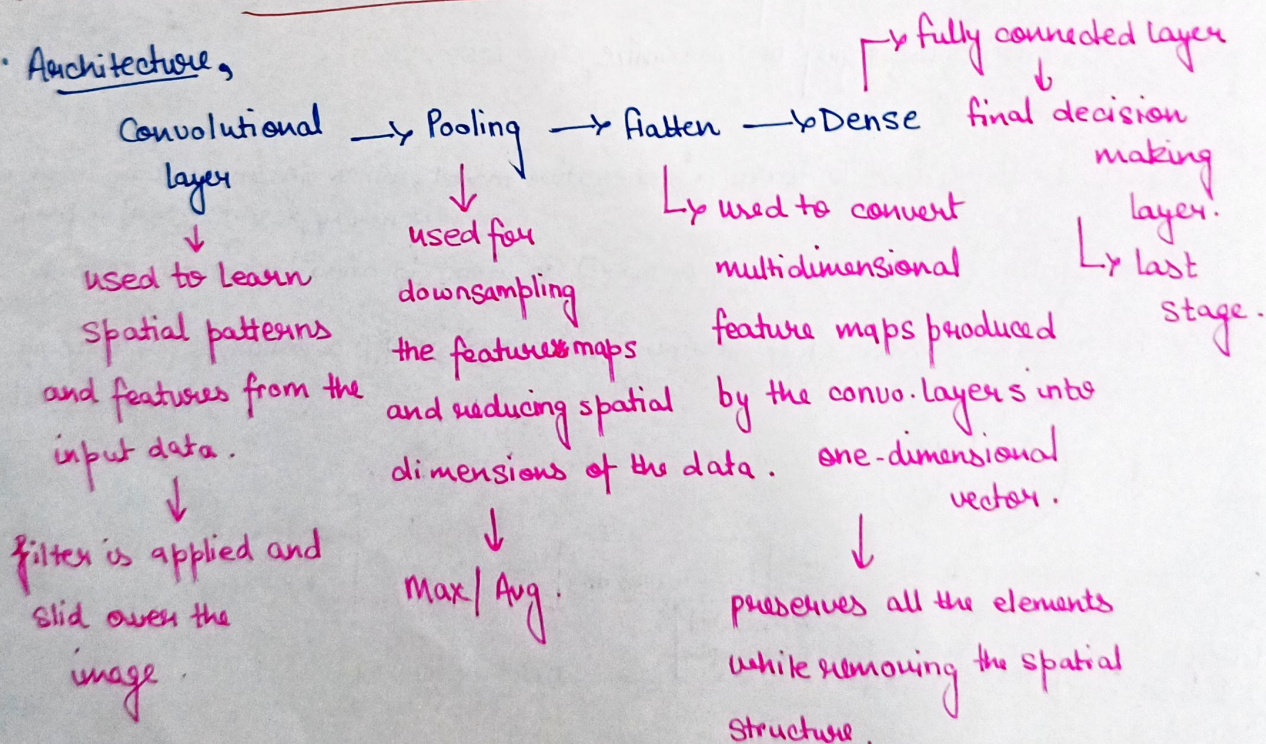 · Architecture,
Convolutional layer → Pooling → flatten → Dense
↓
used to learn
spatial patterns
and features from the
input data.
↓
filter is applied and
slid over the
image.
↓
used for
downsampling
the features maps
and reducing spatial
dimensions of the data.
↓
Max/Avg.
↳ used to convert
multidimensional
feature maps produced
by the convo. layers into
one-dimensional
vector.
↓
preserves all the elements
while removing the spatial
structure.
→ fully connected layer
↓
final decision
making
layer.
↳ last
stage.